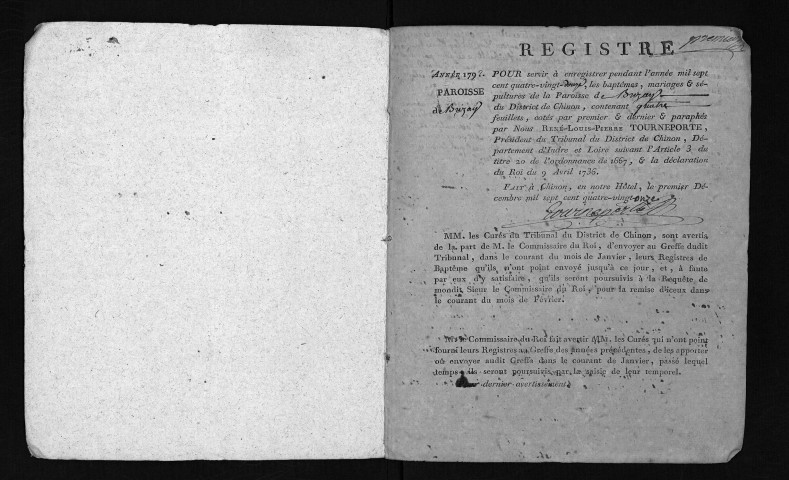 REGISTRE premier
ANNÉE 179
PAROISSE
de Brézay
POUR servir à enregistrer pendant l'année mil sept
cent quatre-vingt-douze, les baptêmes, mariages & sé-
pultures de la Paroisse de
du District de Chinon, contenant quatre
feuillets, cotés par premier & dernier & paraphés
par Nous RENÉ-LOUIS-PIERRE TOURNEPORTE,
Président du Tribunal du District de Chinon, Dé-
partement d'Indre et Loire suivant l'Article 3 du
titre 20 de l'ordonnance de 1667, & la déclaration
du Roi du 9 Avril 1736.
FAIT à Chinon, en notre Hôtel, le premier Dé-
cembre mil sept cent quatre-vingt onze
Tourneporte
MM. les Curés du Tribunal du District de Chinon, sont avertis
de la part de M. le Commissaire du Roi, d'envoyer au Greffe dudit
Tribunal, dans le courant du mois de Janvier, leurs Registres de
Baptême qu'ils n'ont point envoyé jusqu'à ce jour, et, à faute
par eux d'y satisfaire, qu'ils seront poursuivis à la Requête de
mondit Sieur le Commissaire du Roi, pour la remise d'iceux dans
le courant du mois de Février.
M. le Commissaire du Roi fait avertir MM. les Curés qui n'ont point
fourni leurs Registres au Greffe des années précédentes, de les apporter
ou envoyer audit Greffe dans le courant de Janvier, passé lequel
temps ils seront poursuivis par la saisie de leur temporel.
dernier avertissement.